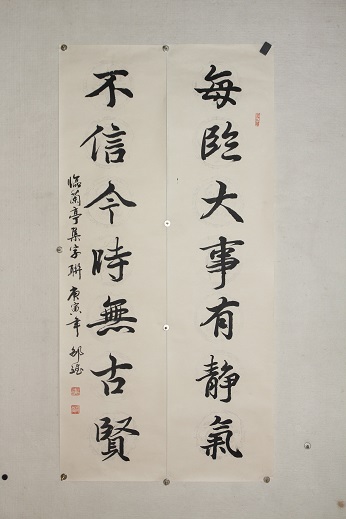 每臨大事有靜氣
不信今時無古賢
臨蘭亭集字聯 庚寅年